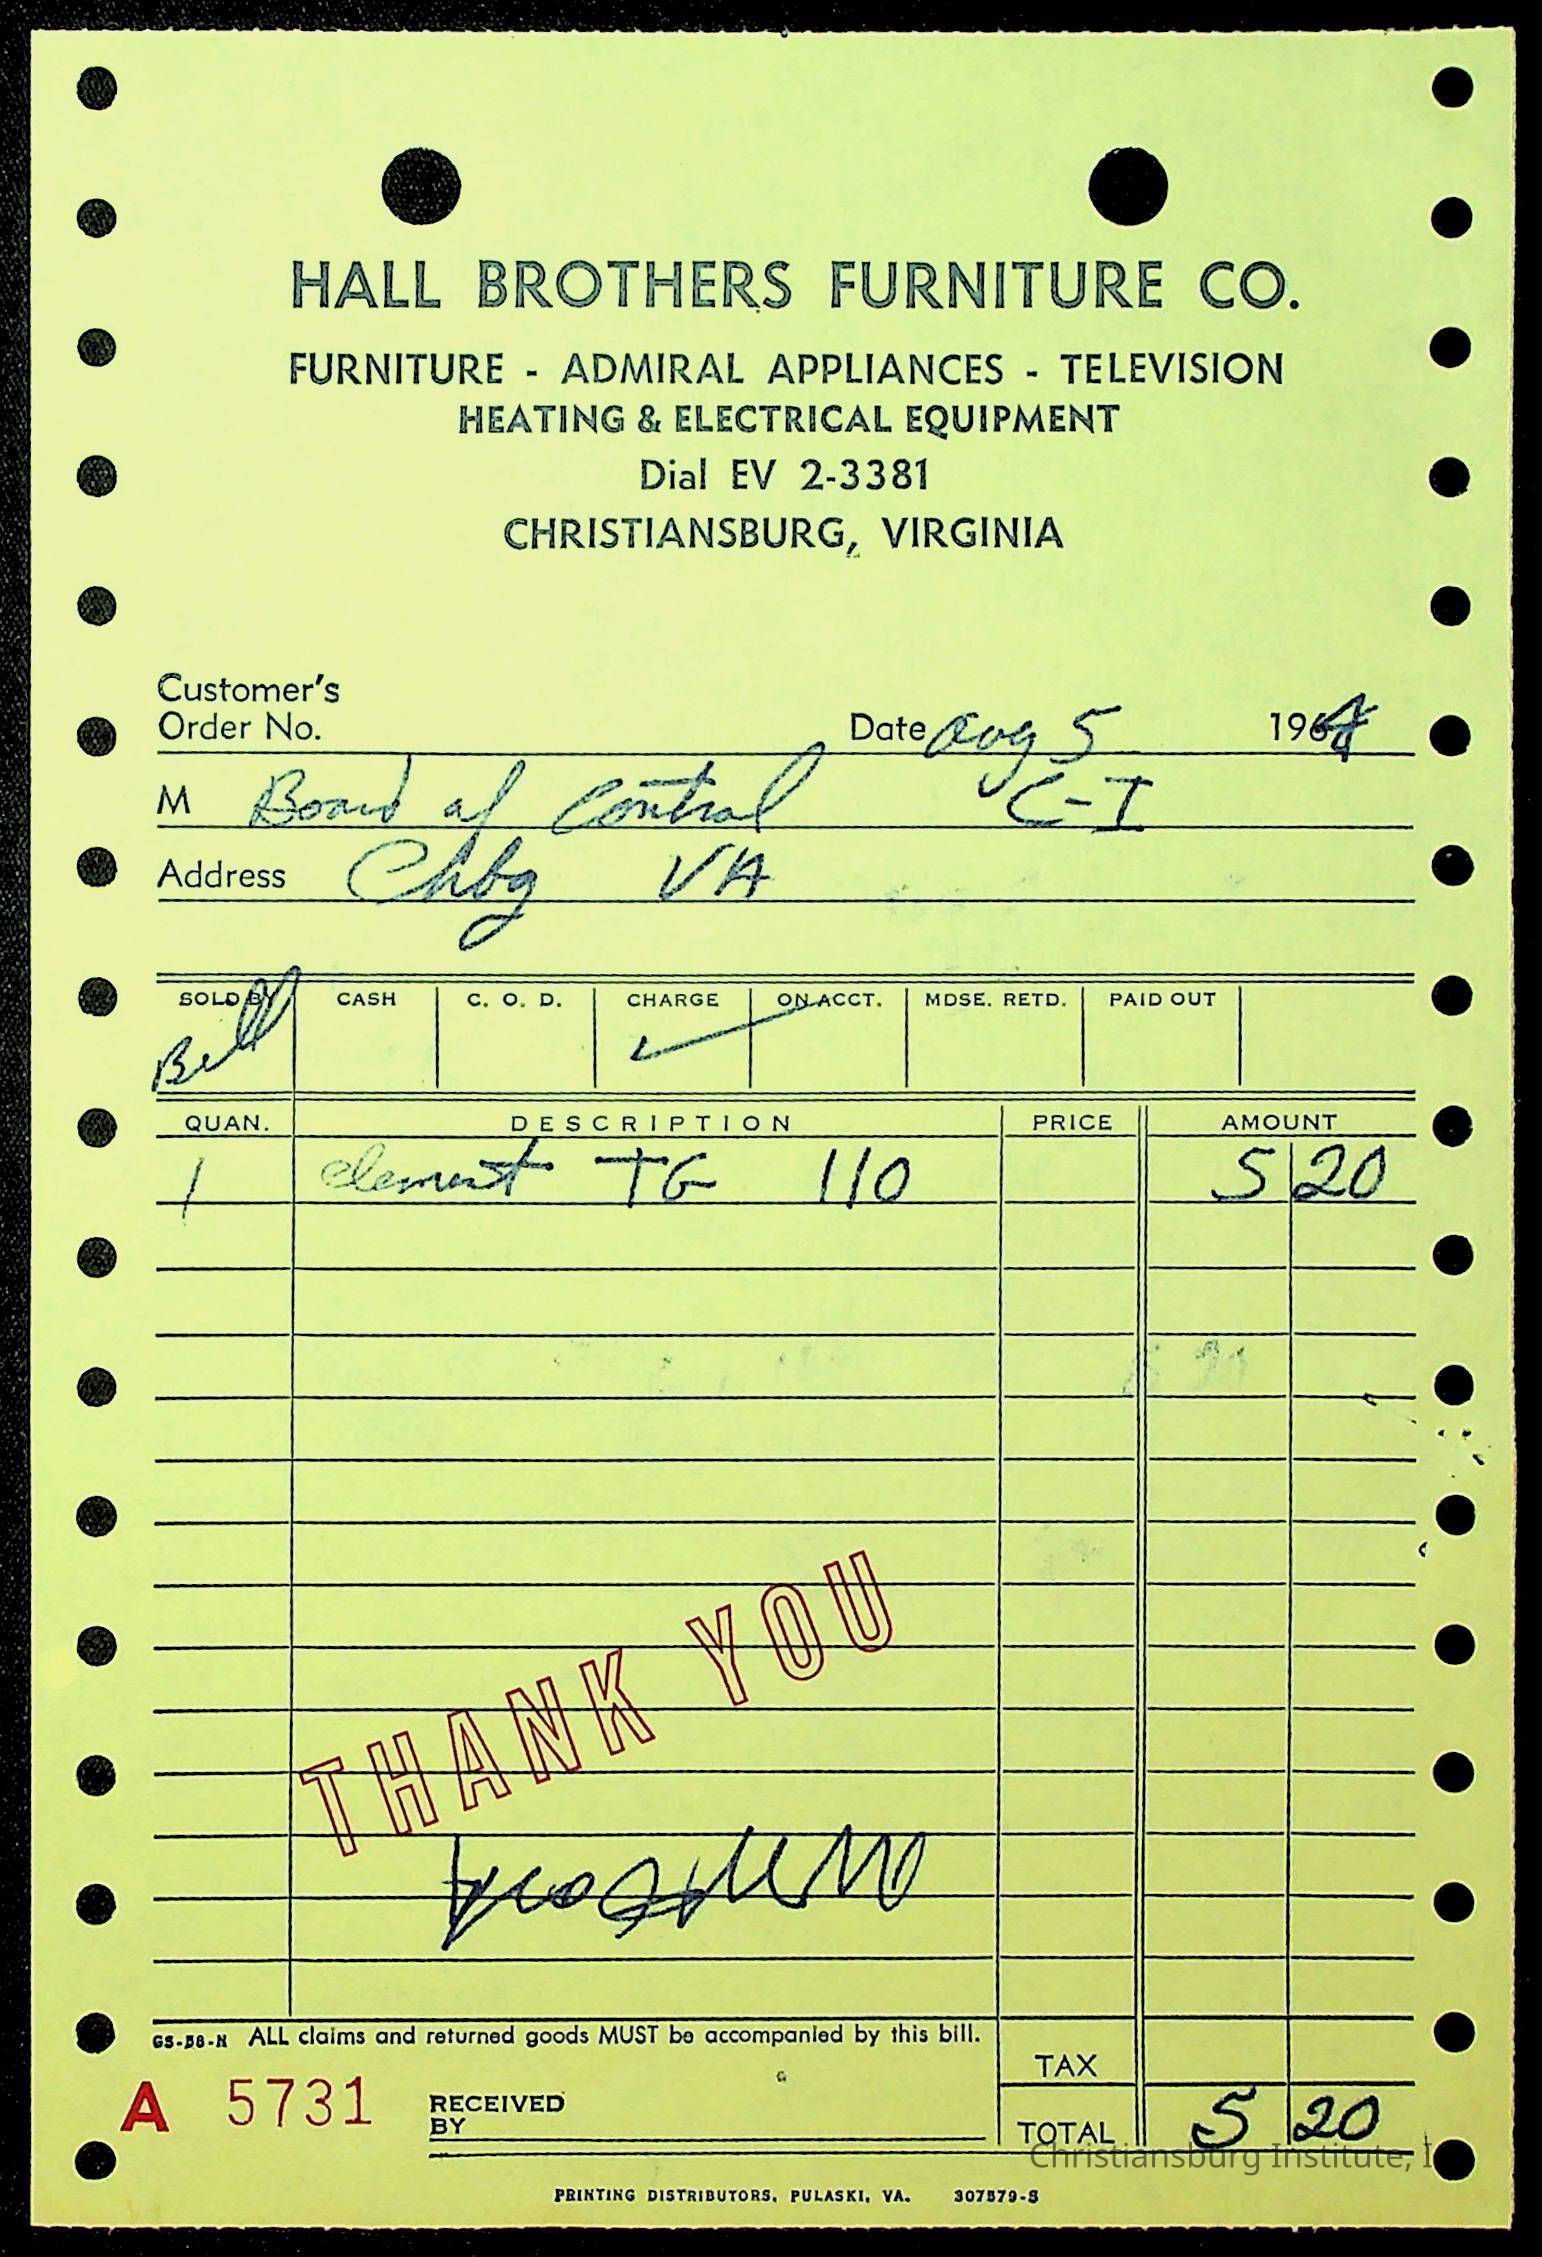 HALL BROTHERS FURNITURE CO.
FURNITURE - ADMIRAL APPLIANCES - TELEVISION
HEATING & ELECTRICAL EQUIPMENT
Dial EV 2-3381
CHRISTIANSBURG, VIRGINIA
Customer's
Order No. Date Aug 5 1964
M Board of Control C-I
Address Chbg VA
SOLD BY CASH C. O. D. CHARGE ON ACCT. MDSE. RETD. PAID OUT
Bill ✓
QUAN. DESCRIPTION PRICE AMOUNT
1 element TG 110 5 20
THANK YOU
GS-58-N ALL claims and returned goods MUST be accompanied by this bill.
TAX
A 5731 RECEIVED BY TOTAL 5 20
Christiansburg Institute, I
PRINTING DISTRIBUTORS, PULASKI, VA. 307579-S